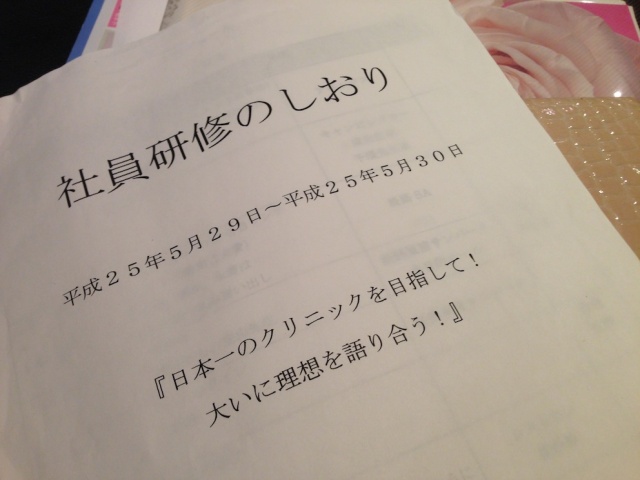 社員研修のしおり
平成２５年５月２９日～平成２５年５月３０日
『日本一のクリニックを目指して！
大いに理想を語り合う！』